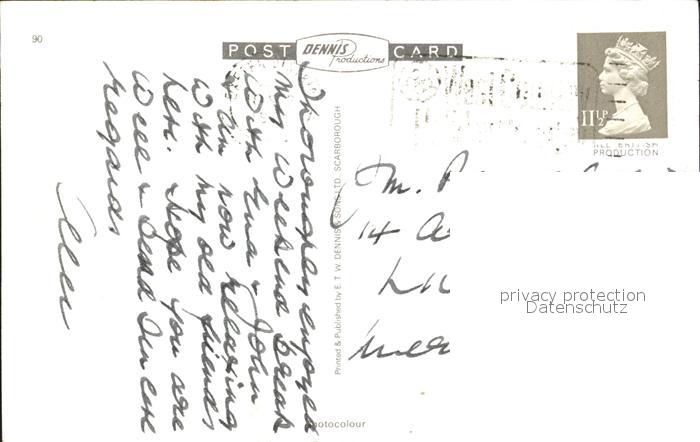 90
POST DENNIS Productions CARD
11½P
ALL BRITISH
PRODUCTION
Thoroughly enjoyed
my weekend break
with Ena & John
& am now relaxing
with my old friends
here. Hope you are
well & send sincere
regards
Printed & Published by E. T. W. DENNIS & SONS LTD. SCARBOROUGH
Photocolour
14
privacy protection
Datenschutz